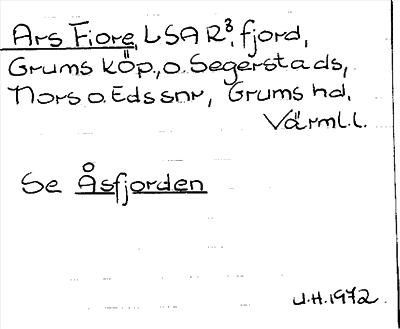 Ars Fiore, LSA R³, fjord,
Grums köp., o. Segerstads,
Nors o. Eds snr, Grums hd,
Värml.l.
Se Åsfjorden
U.H.1972